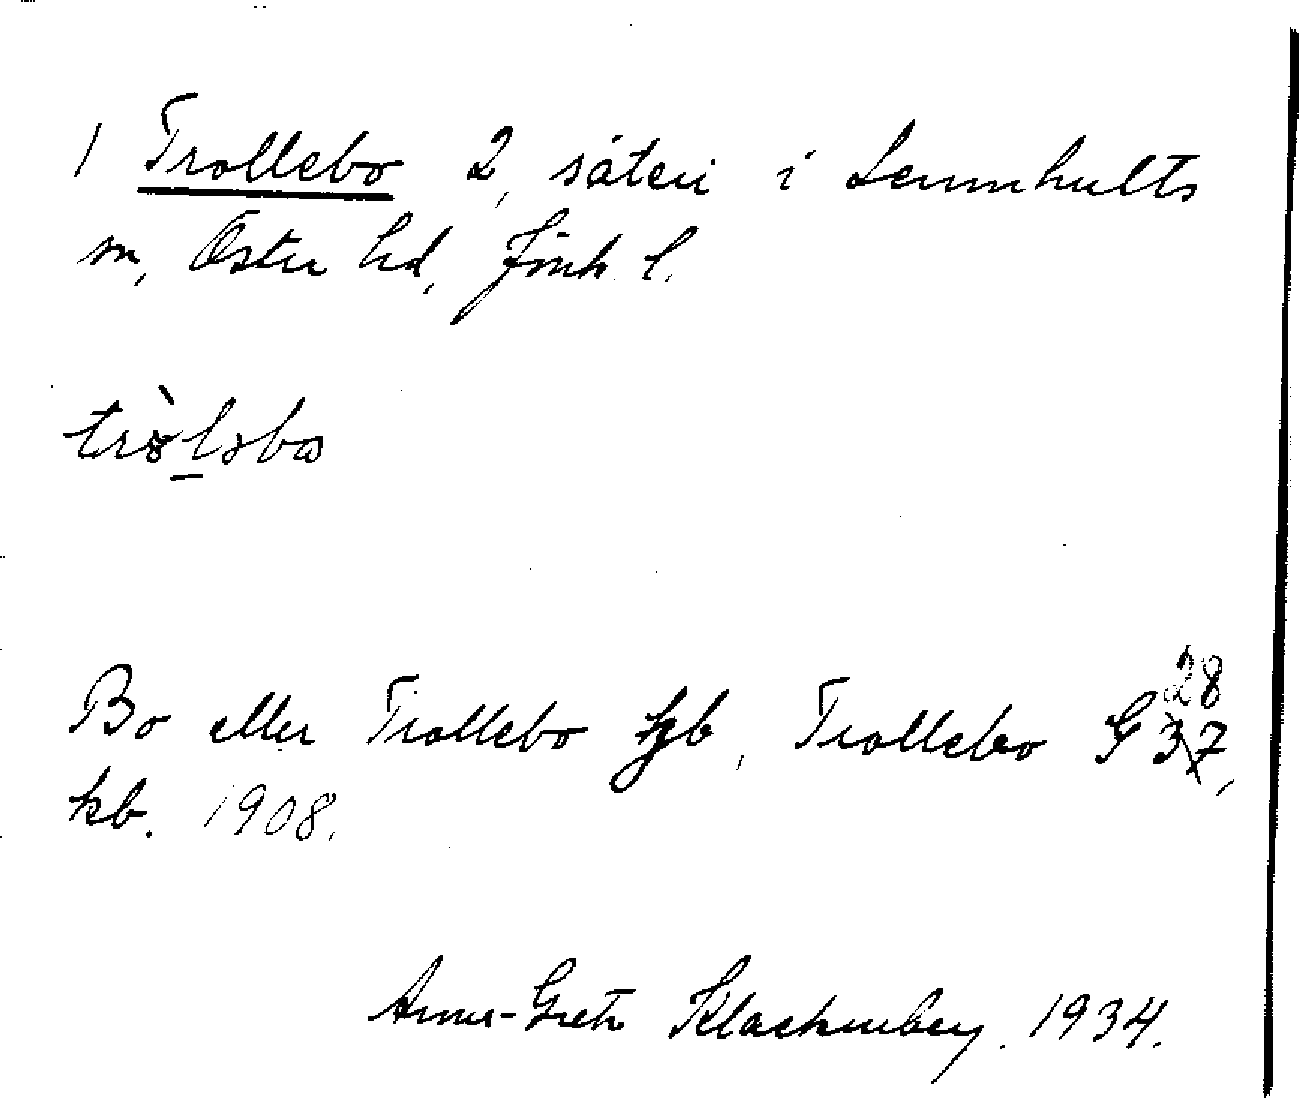 1 Trollebo 2, säteri i Lemnhults
sn, Östra hd, Jönk l.
trò̱lǝbω
Bo eller Trollebo Hgb, Trollebo G 37, 28
kb. 1908.
Anna-Greta Klackenberg. 1934.